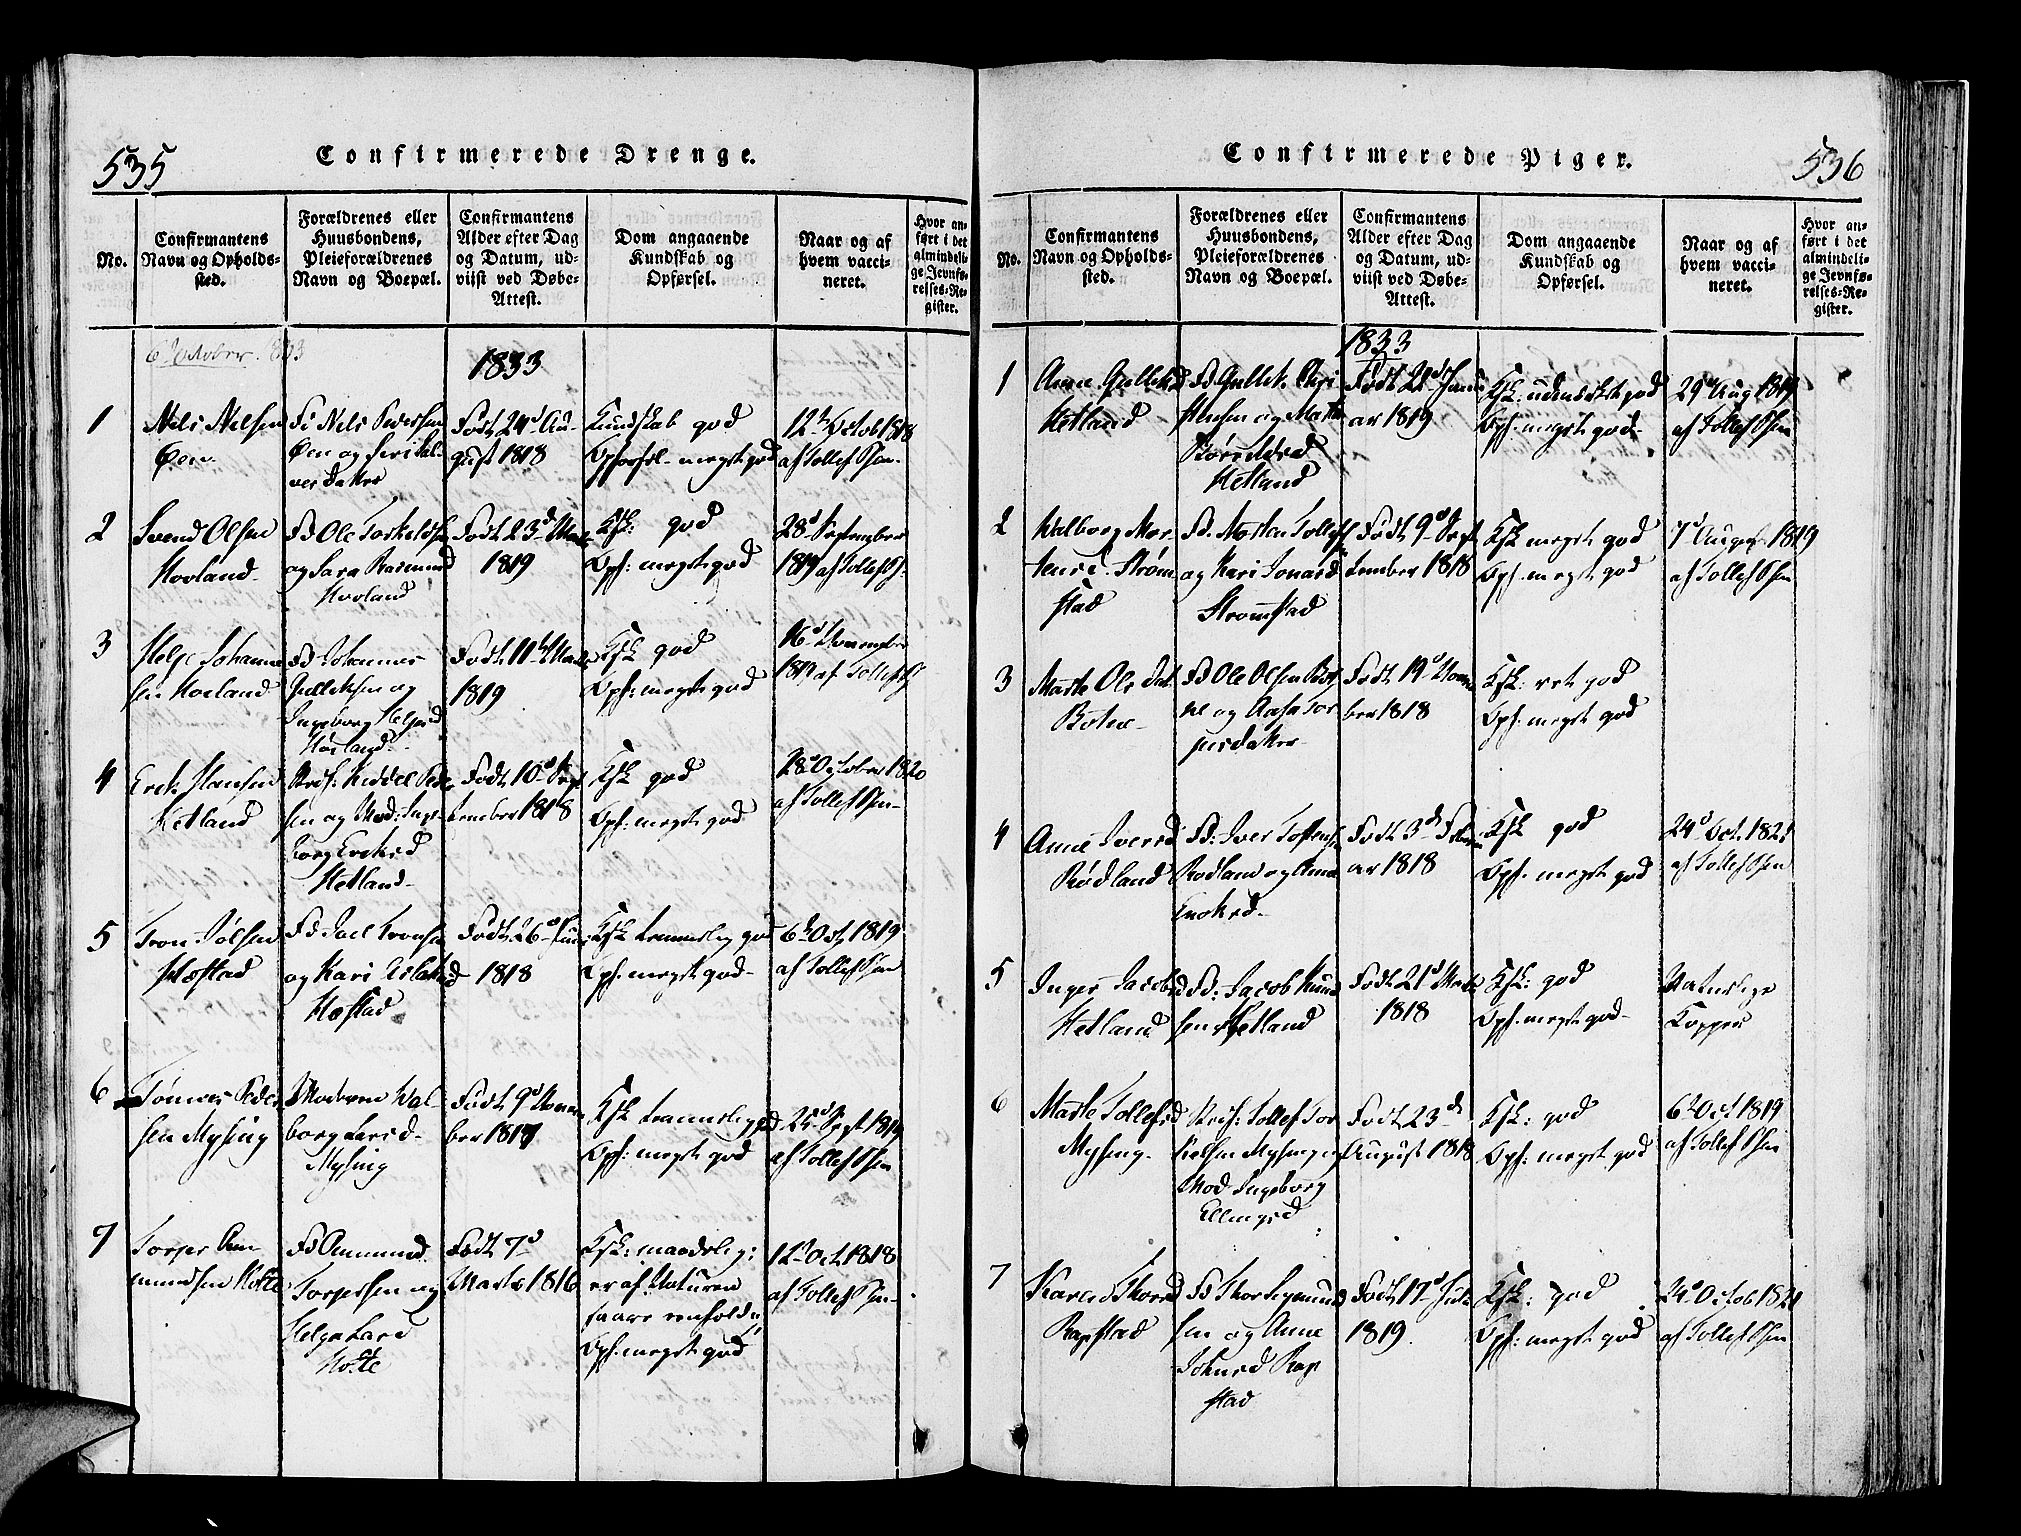 535
Confirmerede Drenge.
No.
Confirmantens
Navn og Opholds-
sted.
Forældrenes eller
Huusbondens,
Pleieforældrenes
Navn og Boepæl.
Confirmantens
Alder efter Dag
og Datum, ud-
viist ved Døbe-
Attest.
Dom angaaende
Kundskab og
Opførsel.
Naar og af
hvem vacci-
neret.
Hvor an-
ført i det
almindeli-
ge Jevnfø-
relses-Re-
gister.
6 October
1833
1
Niels Nielsen
Øen
F: Niels Pedersen
Øen og Siri Hal-
vorsdatter
Født 24d Au-
gust 1818
Kundskab god
Opførsel meget god
12te Octob 1818
af Tollef Olsen
2
Svend Olsen
Hovland
Ole Torkelsen
og Sara Rasmusd
Hovland
Født 23d
1819
Ksk: god
Opf: meget god
28d September
1819 af Tollef
3
Helge Johanne
sen Hovland
Johannes
Gulliksen og
Ingeborg Helgesd
Hovland
Født 11te
1819
Ksk god
Opf: meget god
16d November
1819 af Tollef
4
Erik Hansen
Hetland
Stedf: Kiddel Peder
sen og Mod: Inge-
borg Eriksd
Hetland
Født 10d Sep
tember 1818
Ksk god
Opf: meget god
28d October 1820
af Tollef Olsen
5
Tron
Hæstad
Tronsen
og Kari Aslaksd
Hæstad
Født 26d
1818
Ksk temmelig god
Opf: meget god
6t Oct 1819
af Tollef Olsen
6
Tønnes Peder
sen Mysing
Moderen Wal-
borg Larsd
Mysing
Født 9d Novem
ber 1817
Ksk temmelig god
Opf: meget god
Sept 1819
af Tollef Olsen
7
Torger Am
mundsen Holte
Ammund
Torgersen og
Helga Larsd
Holte
Født 7d
Marts 1816
Ksk: maadelig:
er af Naturen
Opf: meget god
12te Oct 1818
af Tollef Olsen
536
Confirmerede Piger.
No.
Confirmantens
Navn og Opholds-
sted.
Forældrenes eller
Huusbondens,
Pleieforældrenes
Navn og Boepæl.
Confirmantens
Alder efter Dag
og Datum, ud-
viist ved Døbe-
Attest.
Dom angaaende
Kundskab og
Opførsel.
Naar og af
hvem vacci-
neret.
Hvor an-
ført i det
almindeli-
ge Jevnfø-
relses-Re-
gister.
1833
1
Anne Gulliksd
Hetland
Gullik Chri
stensen og Marte
Hetland
Født 21d Janu
ar 1819
Ksk: god
Opf: meget god
29d Aug 1819
af Tollef Olsen
2
Walborg Mor
tensd Strøm
stad
F. Morten Tollefs
og Kari Jonasd
Strømstad
Født 9d Sept
tember 1818
Ksk meget god
Opf: meget god
7d August 1819
af Tollef Olsen
3
Marte Ols Dat
Botne
Ole Olsen Bot
ne og Aasa Tor
gersdatter
Født 19d Novem
ber 1818
Ksk: ret god
Opf: meget god
4
Anne Iversd
Rødland
F: Iver Tostensen
Rødland og Anna
Enoksd
Født 3d Febru
ar 1818
Ksk god
Opf: meget god
24d Oct. 1821
af Tollef Olsen
5
Inger Jacobsd
Hetland
F: Jacob Knud
sen Hetland
Født 21d
1818
Ksk: god
Opf: meget god
Naturlige
Kopper
6
Marte Tollefsd
Mysing
Stedf: Tollef Tor
kelsen Mysing og
Mod Ingeborg
Ellingsd
Født 23d
August 1818
Ksk: god
Opf: meget god
6t Oct 1819
af Tollef Olsen
7
Karen Thorsd
Rapstad
Thor Sigmund
sen og Anne
Johnsd Rap
stad
Født 17d
1819
Ksk: god
Opf: meget god
24d Octob 1821
af Tollef Olsen